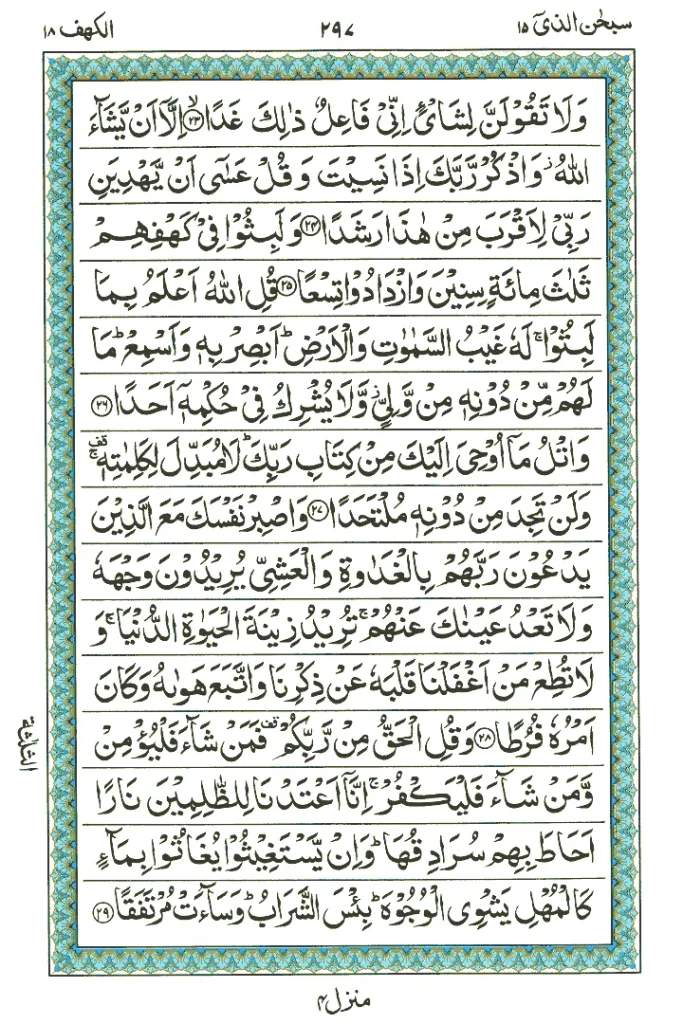 سبحٰن الذیٓ ۱۵ ۲۹۷ الکهف ۱۸
وَلَا تَقُوْلَنَّ لِشَایْءٍ اِنِّیْ فَاعِلٌ ذٰلِكَ غَدًا ۙ﴿۲۳﴾ اِلَّاۤ اَنْ یَّشَآءَ
اللّٰهُ ؗ وَاذْكُرْ رَّبَّكَ اِذَا نَسِیْتَ وَقُلْ عَسٰۤی اَنْ یَّهْدِیَنِ
رَبِّیْ لِاَقْرَبَ مِنْ هٰذَا رَشَدًا ﴿۲۴﴾ وَلَبِثُوْا فِیْ كَهْفِهِمْ
ثَلٰثَ مِائَةٍ سِنِیْنَ وَازْدَادُوْا تِسْعًا ﴿۲۵﴾ قُلِ اللّٰهُ اَعْلَمُ بِمَا
لَبِثُوْا ۚ لَهٗ غَیْبُ السَّمٰوٰتِ وَالْاَرْضِ ؕ اَبْصِرْ بِهٖ وَاَسْمِعْ ؕ مَا
لَهُمْ مِّنْ دُوْنِهٖ مِنْ وَّلِیٍّ ؗ وَّلَا یُشْرِكُ فِیْ حُكْمِهٖۤ اَحَدًا ﴿۲۶﴾
وَاتْلُ مَاۤ اُوْحِیَ اِلَیْكَ مِنْ كِتَابِ رَبِّكَ ؕ لَا مُبَدِّلَ لِكَلِمٰتِهٖ ۚ قف
وَلَنْ تَجِدَ مِنْ دُوْنِهٖ مُلْتَحَدًا ﴿۲۷﴾ وَاصْبِرْ نَفْسَكَ مَعَ الَّذِیْنَ
یَدْعُوْنَ رَبَّهُمْ بِالْغَدٰوةِ وَالْعَشِیِّ یُرِیْدُوْنَ وَجْهَهٗ
وَلَا تَعْدُ عَیْنٰكَ عَنْهُمْ ۚ تُرِیْدُ زِیْنَةَ الْحَیٰوةِ الدُّنْیَا ۚ وَ
لَا تُطِعْ مَنْ اَغْفَلْنَا قَلْبَهٗ عَنْ ذِكْرِنَا وَاتَّبَعَ هَوٰىهُ وَكَانَ
اَمْرُهٗ فُرُطًا ﴿۲۸﴾ وَقُلِ الْحَقُّ مِنْ رَّبِّكُمْ قف فَمَنْ شَآءَ فَلْیُؤْمِنْ
وَّمَنْ شَآءَ فَلْیَكْفُرْ ۚ اِنَّاۤ اَعْتَدْنَا لِلظّٰلِمِیْنَ نَارًا
اَحَاطَ بِهِمْ سُرَادِقُهَا ؕ وَاِنْ یَّسْتَغِیْثُوْا یُغَاثُوْا بِمَآءٍ
كَالْمُهْلِ یَشْوِی الْوُجُوْهَ ؕ بِئْسَ الشَّرَابُ ؕ وَسَآءَتْ مُرْتَفَقًا ﴿۲۹﴾
الثلٰثة
منزل۴